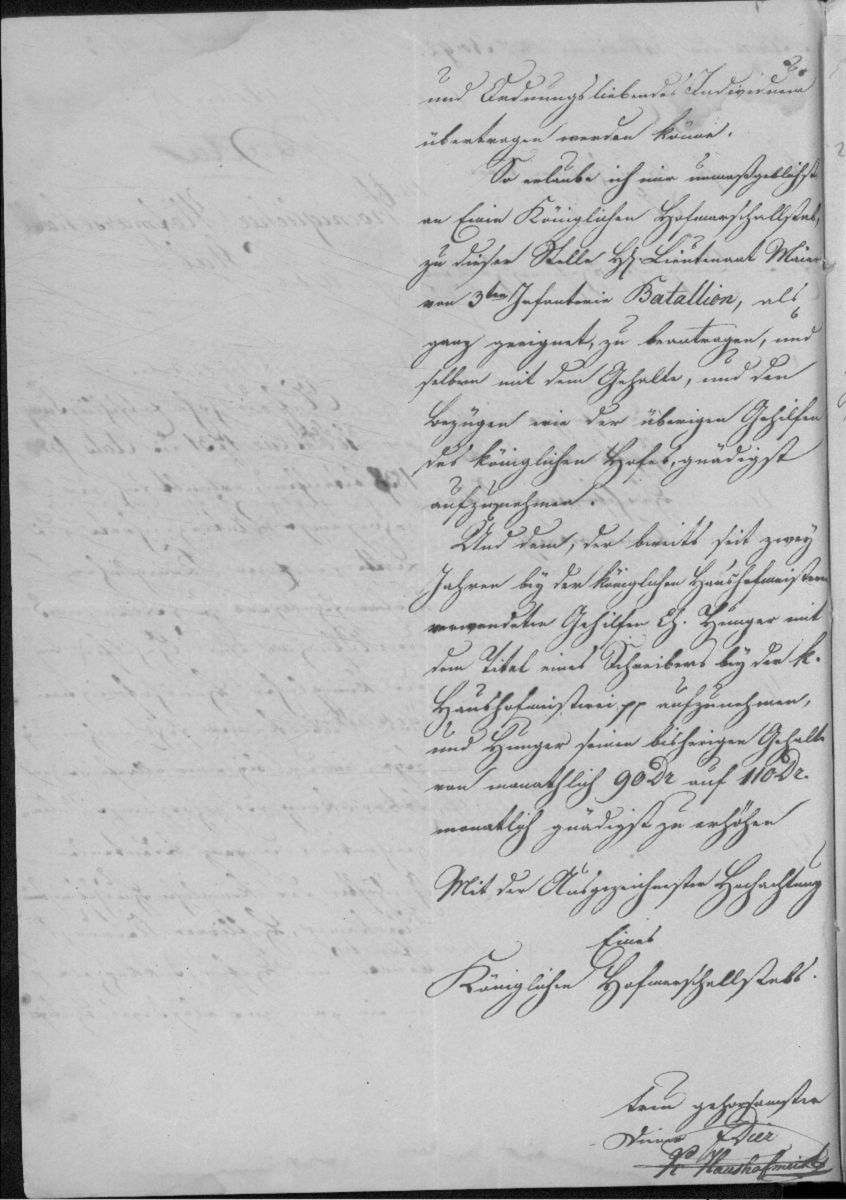 und Ordnungsliebendes Individuum
übertragen werden könne.
So erlaube ich mir unmaßgeblichst
an Einen Königlichen Hofmarschallstab,
zu dieser Stelle H. Lieutenant Maier
vom 3ten Infanterie Batallion, als
ganz geeignet, zu beantragen, und
selben mit dem Gehalte, und den
Bezügen wie der übrigen Gehilfen
des königlichen Hofes, gnädigst
aufzunehmen.
Und dem, der bereits seit zwey
Jahren bey der königlichen Haushofmeisterei
verwendeten Gehilfen Ch. Hunger mit
dem Titel eines Schreibers bey der k.
Haushofmeisterei pp aufzunehmen,
und Hunger seinen bisherigen Gehalt
von monathlich 90 Dr auf 110 Dr.
monatlich gnädigst zu erhöhen
Mit der Ausgezeichnesten Hochachtung
Eines
Königlichen Hofmarschallstabs.
treu gehorsamster
Diener
K Haushofmeister